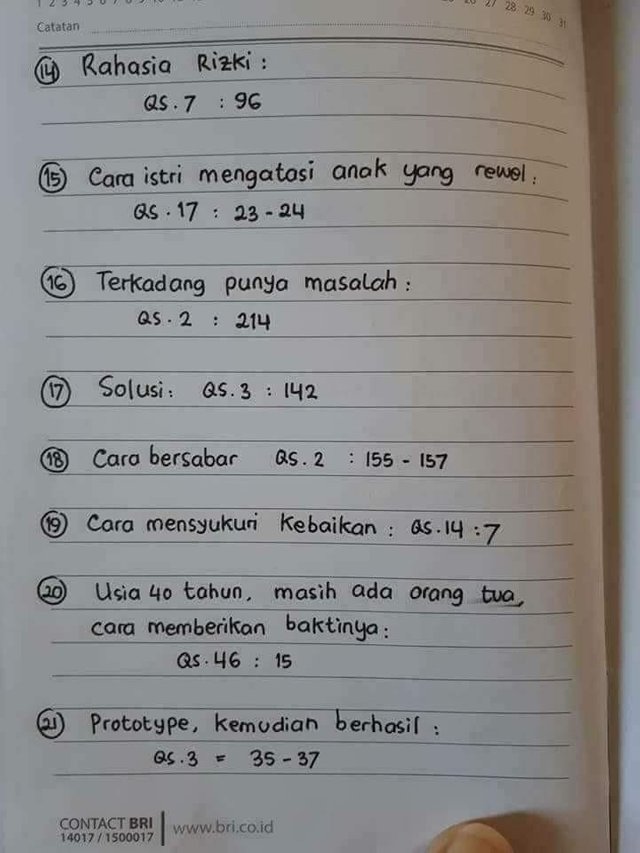 Catatan
27 28 29 30 31
14 Rahasia Rizki :
QS. 7 : 96
15 Cara istri mengatasi anak yang rewel :
QS. 17 : 23 - 24
16 Terkadang punya masalah :
QS. 2 : 214
17 Solusi : QS. 3 : 142
18 Cara bersabar QS. 2 : 155 - 157
19 Cara mensyukuri Kebaikan : QS. 14 : 7
20 Usia 40 tahun, masih ada orang tua,
cara memberikan baktinya :
QS. 46 : 15
21 Prototype, kemudian berhasil :
QS. 3 = 35 - 37
CONTACT BRI
14017 / 1500017
www.bri.co.id